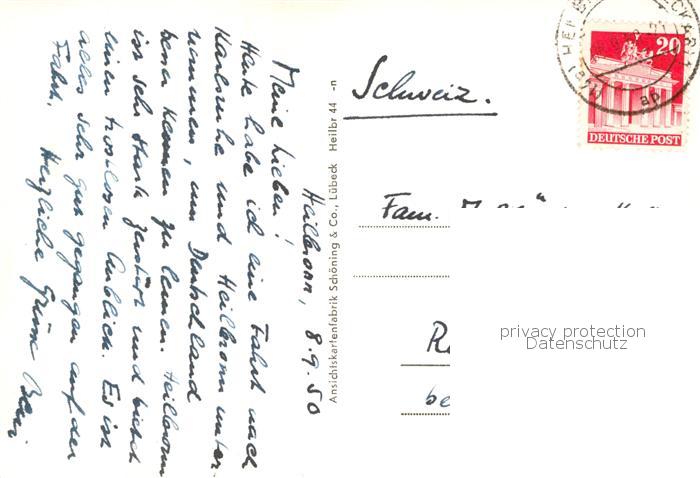 Heilbronn, 8.9.50
Meine Lieben!
Heute habe ich eine Fahrt nach
Karlsruhe und Heilbronn unter-
nommen, um Deutschland
kennen zu lernen. Heilbronn
ist sehr stark zerstört und bietet
einen trostlosen Anblick. Es ist
alles sehr gut gegangen auf der
Fahrt. Herzliche Grüsse
Ansichtskartenfabrik Schöning & Co., Lübeck Heilbr 44 -n
20
DEUTSCHE POST
Schweiz.
Fam.
privacy protection
Datenschutz
be